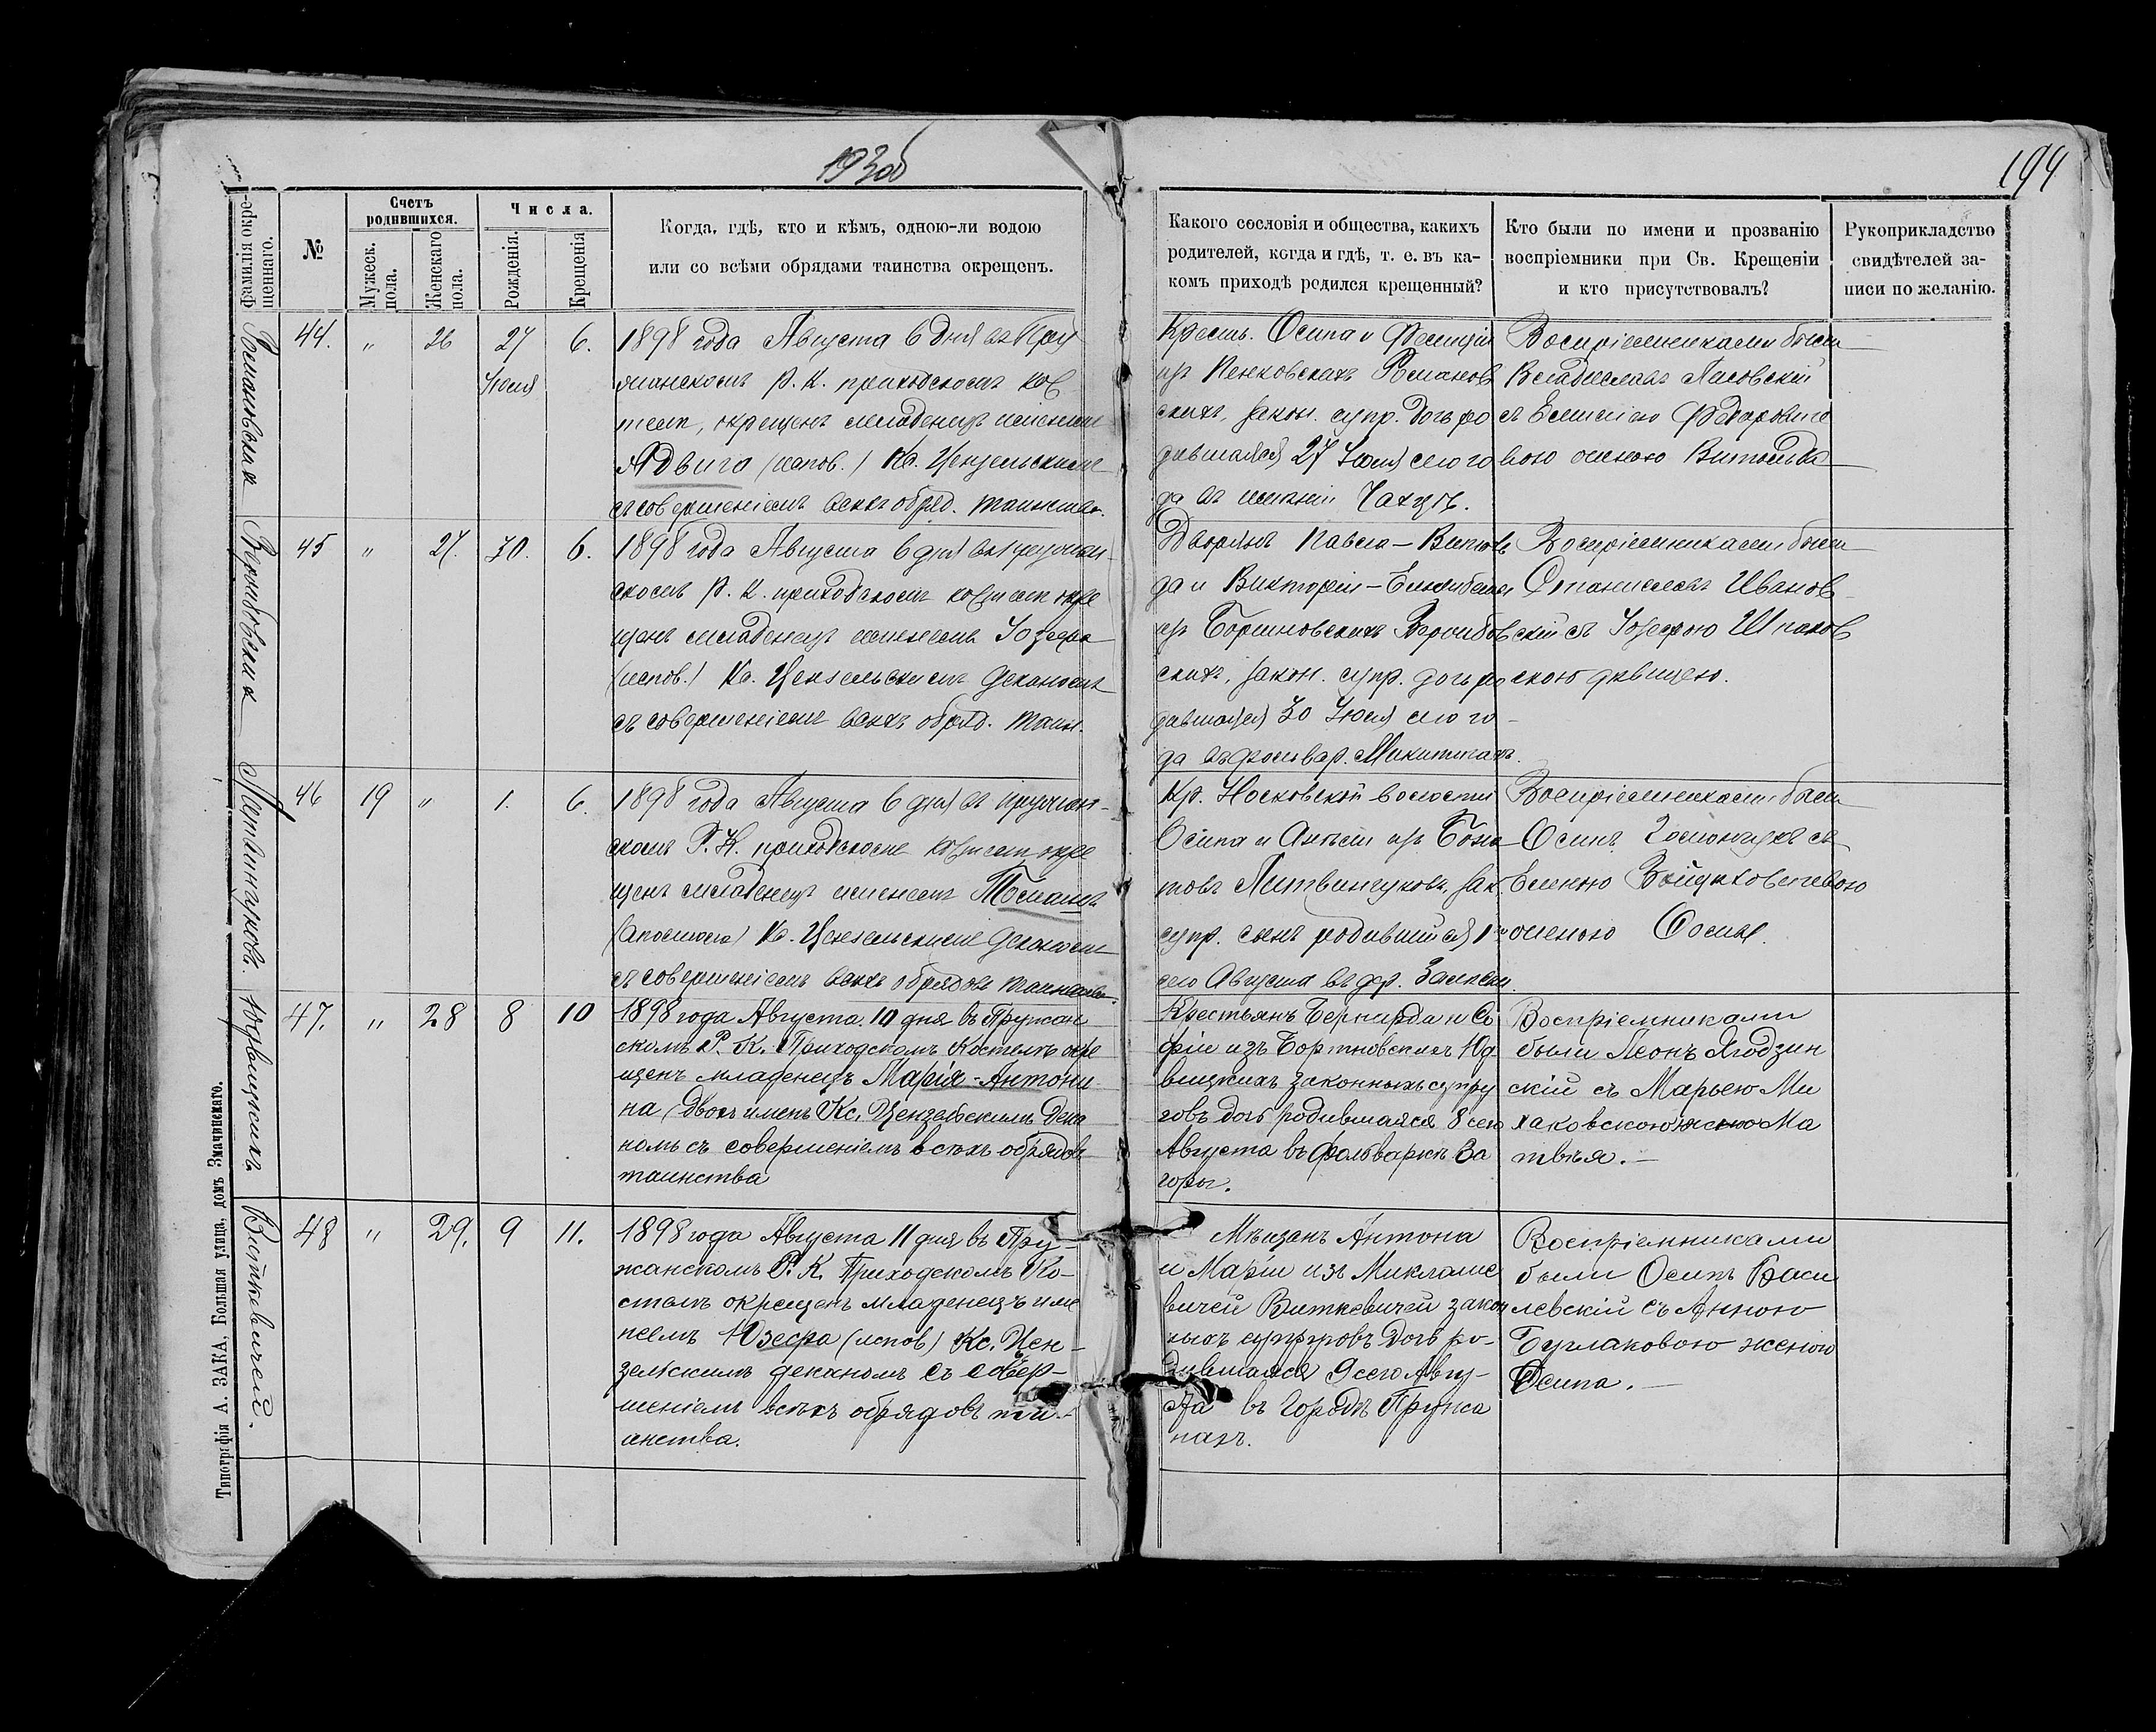 193об
194
Фамилія окре-
щеннаго.
№
Счетъ
родившихся.
Мужеск.
пола.
Женскаго
пола.
Числа.
Рожденія.
Крещенія
Когда, гдѣ, кто и кѣмъ, одною-ли водою
или со всѣми обрядами таинства окрещенъ.
Какого сословія и общества, какихъ
родителей, когда и гдѣ, т. е. въ ка-
комъ приходѣ родился крещенный?
Кто были по имени и прозванію
воспріемники при Св. Крещеніи
и кто присутствовалъ?
Рукоприкладство
свидѣтелей за-
писи по желанію.
Романовская
44. " 26 27 6.
Іюля
1898 года Августа 6 дня въ Пру
жанскомъ Р. К. приходскомъ кос
телѣ, окрещенъ младенецъ именемъ
Ядвига (испов.) Кс. Цензельскимъ
съ совершеніемъ всѣхъ обряд. таинства.
Крест. Осипа и Фелиціи
изъ Пенковскихъ Романов
скихъ, закон. супр. дочь ро
дившаяся 27 Іюля сего го
да въ имѣніи Чахецъ.
Воспріемниками были
Владиславъ Лясовскій
съ Емиліею Федорович
вою женою Витольда
45 " 27. 30. 6.
1898 года Августа 6 дня въ Пружан-
скомъ Р. К. приходскомъ костелѣ окре
щенъ младенецъ именемъ Юзефа
(испов.) Кс. Цензельскимъ Деканомъ
съ совершеніемъ всѣхъ обряд. таин.
Дворянъ Павла-Витоль
да и Викторіи-Елизаветы
скихъ, закон. супр. дочь ро
дившаяся 30 Іюля сего го-
да въ фольвар. Микитичахъ.
Воспріемниками были
Станиславъ Иванов-
скій съ Юзефою Шпаков
скою дѣвицею.
Литвинчуковъ.
46 19 " 1. 6.
1898 года Августа 6 дня въ Пружан-
скомъ Р. К. приходскомъ костелѣ окре
щенъ младенецъ именемъ Томашъ
(Апостола) Кс. Цензельскимъ Деканомъ
съ совершеніемъ всѣхъ обрядовъ таинства.
Кр. Носковской волости
супр. сынъ родившійся 1го
сего Августа въ дер.
Воспріемниками были
женою Осипа.
Юдвицкихъ
47. " 28 8 10
1898 года Августа 10 дня въ Пружан
скомъ Р. К. Приходскомъ Костелѣ окре
щенъ младенецъ Марія-Антони
на (двохъ именъ Кс. Цензельскимъ Дека
номъ съ совершеніемъ всѣхъ обрядовъ
таинства
Крестьянъ Бернарда и Со
фіи изъ Бортновскихъ Юд
вицкихъ законныхъ супру
говъ дочь родившаяся 8 сего
Августа въ фольваркѣ За
горог.
Воспріемниками
были Леонъ Ягодзин
скій съ Марьею Ми
хаковскою женою Ма
твѣя.
Виткевичей.
48 " 29. 9 11.
1898 года Августа 11 дня въ Пру-
жанскомъ Р. К. Приходскомъ Ко-
стелѣ окрещенъ младенецъ име
немъ Юзефа (испов) Кс. Цен-
зельскимъ деканомъ съ совер-
шеніемъ всѣхъ обрядовъ та-
инства.
Мѣщанъ Антона
и Маріи изъ Миклаше
вичей Виткевичей закон
ныхъ супруговъ дочь ро-
дившаяся 9 сего Авгу-
ста въ городѣ Пружа
нахъ.
Воспріемниками
были Осипъ Васи
левскій съ Анною
Бурлаковою женою
Осипа.
Типографія А. ЗАКА, Большая улица, домъ Змачинскаго.